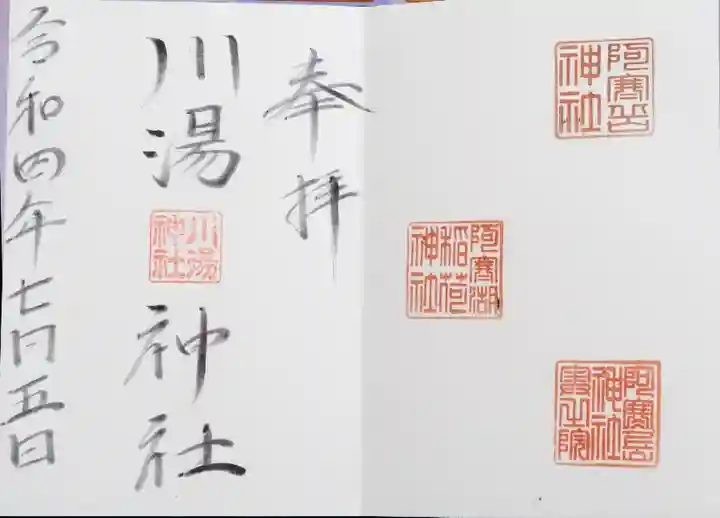 阿寒岳
神社
阿寒湖
稲荷
神社
阿寒岳
神社
奥之院
奉拝
川湯神社
川湯
神社
令和四年七月五日